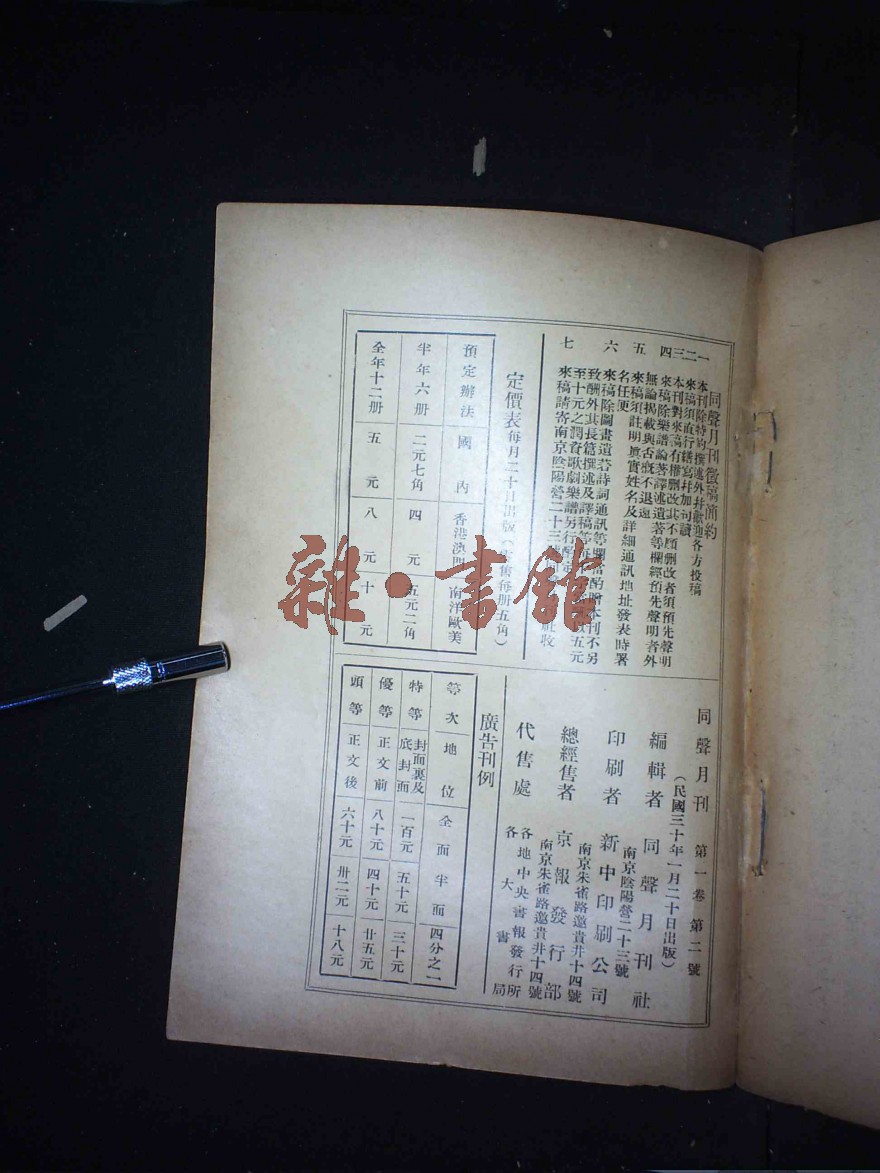 同聲月刊徵稿簡約
一 本刊除特約撰述外幷歡迎各方投稿
二 來稿須直行繕寫幷加句讀
三 本刊對來稿有權刪改其不願刪改者須預先聲明
四 來稿除樂譜論著譯述遺著等欄經預先聲明者外
無論揭載與否槪不退還
五 來稿須註明眞實姓名及詳細通訊地址發表時署
名任便
六 來稿除圖畫遺著詩詞通訊等欄酌贈本刊不另
致酬外其長篇撰述及譯稿等每千字 五元
至十元之潤資歌劇樂譜另行酌
七 來稿請寄南京陰陽營二十三 社收
定價表 每月二十日出版(零售每册五角)
預定辦法 國內 香港澳門 南洋歐美
半年六册 二元七角 四元 五元二角
全年十二册 五元 八元 十元
同聲月刊 第一卷 第二號
(民國三十年一月二十日出版)
編輯者 同聲月刊社
南京陰陽營二十三號
印刷者 新中印刷公司
南京朱雀路邀貴井十四號
總經售者 京報發行部
南京朱雀路邀貴井十四號
代售處 各地中央書報發行所
各大書局
廣告刊例
等次 地位 全面 半面 四分之一
特等 封面裏及底封面 一百元 五十元 三十元
優等 正文前 八十元 四十元 廿五元
頭等 正文後 六十元 卅二元 十八元
雜·書館